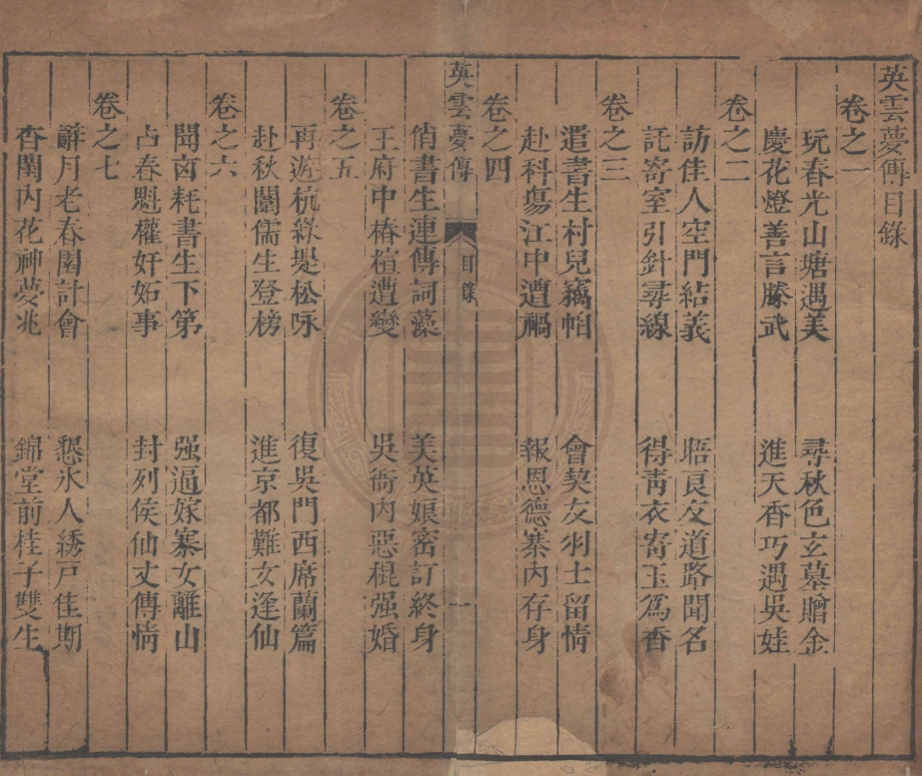 英雲夢傳目錄
卷之一
玩春光山塘遇美 尋秋色玄墓贈金
慶花燈善言勝武 進天香巧遇吳娃
卷之二
訪佳人空門結義 晤良友道路聞名
託寄室引針尋線 得靑衣寄玉為香
卷之三
遣書生村兒竊帕 會契友羽士留情
赴科場江中遭禍 報恩德寨內存身
卷之四
英雲夢傳 目錄 一
俏書生連傳詞藻 美英娘密訂終身
王府中椿萱遭變 吳衙內惡棍强婚
卷之五
再遊杭綠堤松咏 復吳門西席蘭篇
赴秋闈儒生登榜 進京都難女逢仙
卷之六
聞凶耗書生下第 强逼嫁寨女離山
占春魁權奸妬事 封列侯仙丈傳情
卷之七
辭月老春園計會 懇氷人綉戶佳期
杳閨內花神夢兆 錦堂前桂子雙生